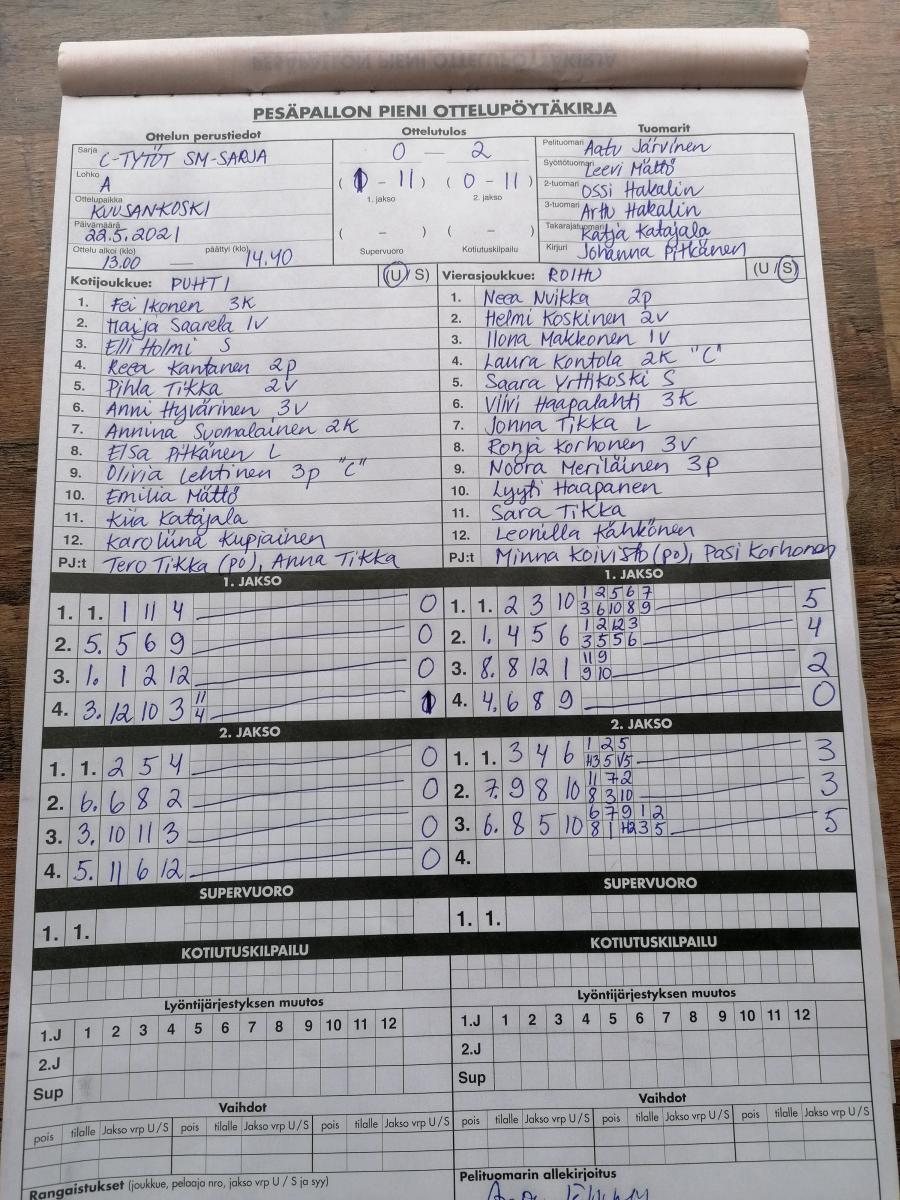 PESÄPALLON PIENI OTTELUPÖYTÄKIRJA
Ottelun perustiedot
Ottelutulos
Tuomarit
Sarja C-TYTÖT SM-SARJA
Lohko A
Ottelupaikka KUUSANKOSKI
Päivämäärä 22.5.2021
Ottelu alkoi (klo) 13.00 — päättyi (klo) 14.40
0 — 2
(1 - 11) (0 - 11)
1. jakso 2. jakso
( - ) ( - )
Supervuoro Kotiutuskilpailu
Pelituomari Aatu Järvinen
Syöttötuomari Leevi Mättö
2-tuomari Ossi Hakalin
3-tuomari Arttu Hakalin
Takarajatuomari Katja Katajala
Kirjuri Johanna Pitkänen
Kotijoukkue: PUHTI (U / S)
1. Fei Ikonen 3K
2. Haija Saarela 1V
3. Elli Holmi S
4. Reea Kantanen 2p
5. Pihla Tikka 2V
6. Anni Hyvärinen 3V
7. Annina Suomalainen 2K
8. Elsa Pitkänen L
9. Olivia Lehtinen 3p "C"
10. Emilia Mättö
11. Kiia Katajala
12. Karoliina Kupiainen
PJ:t Tero Tikka (pö), Anna Tikka
Vierasjoukkue: ROIHU (U / S)
1. Neea Nuikka 2p
2. Helmi Koskinen 2V
3. Ilona Makkonen 1V
4. Laura Kontola 2K "C"
5. Saara Yrttikoski S
6. Viivi Haapalahti 3K
7. Jonna Tikka L
8. Ronja Korhonen 3V
9. Noora Meriläinen 3p
10. Lyyti Haapanen
11. Sara Tikka
12. Leonilla Kähkönen
PJ:t Minna Koivisto (pö), Pasi Korhonen
1. JAKSO
1. 1. 1 11 4 0
2. 5. 5 6 9 0
3. 1. 1 2 12 0
4. 3. 12 10 3 11 4 1
2. JAKSO
1. 1. 2 5 4 0
2. 6. 6 8 2 0
3. 3. 10 11 3 0
4. 5. 11 6 12 0
SUPERVUORO
1. 1.
KOTIUTUSKILPAILU
1. JAKSO
1. 1. 2 3 10 1 2 5 6 7 5
3 6 10 8 9
2. 1. 4 5 6 1 2 12 3 4
3 5 5 6
3. 8. 8 12 1 11 9 2
9 10
4. 4. 6 8 9 0
2. JAKSO
1. 1. 3 4 6 1 2 5 3
2. 7. 9 8 10 11 7 2 3
8 3 10
3. 6. 8 5 10 6 7 9 1 2 5
4.
SUPERVUORO
1. 1.
KOTIUTUSKILPAILU
Lyöntijärjestyksen muutos
1.J 1 2 3 4 5 6 7 8 9 10 11 12
2.J
Sup
Vaihdot
pois tilalle Jakso vrp U / S pois tilalle Jakso vrp U / S pois tilalle Jakso vrp U / S
Rangaistukset (joukkue, pelaaja nro, jakso vrp U / S ja syy)
Lyöntijärjestyksen muutos
1.J 1 2 3 4 5 6 7 8 9 10 11 12
2.J
Sup
Vaihdot
pois tilalle Jakso vrp U / S pois tilalle Jakso vrp U / S pois tilalle Jakso vrp U / S
Pelituomarin allekirjoitus